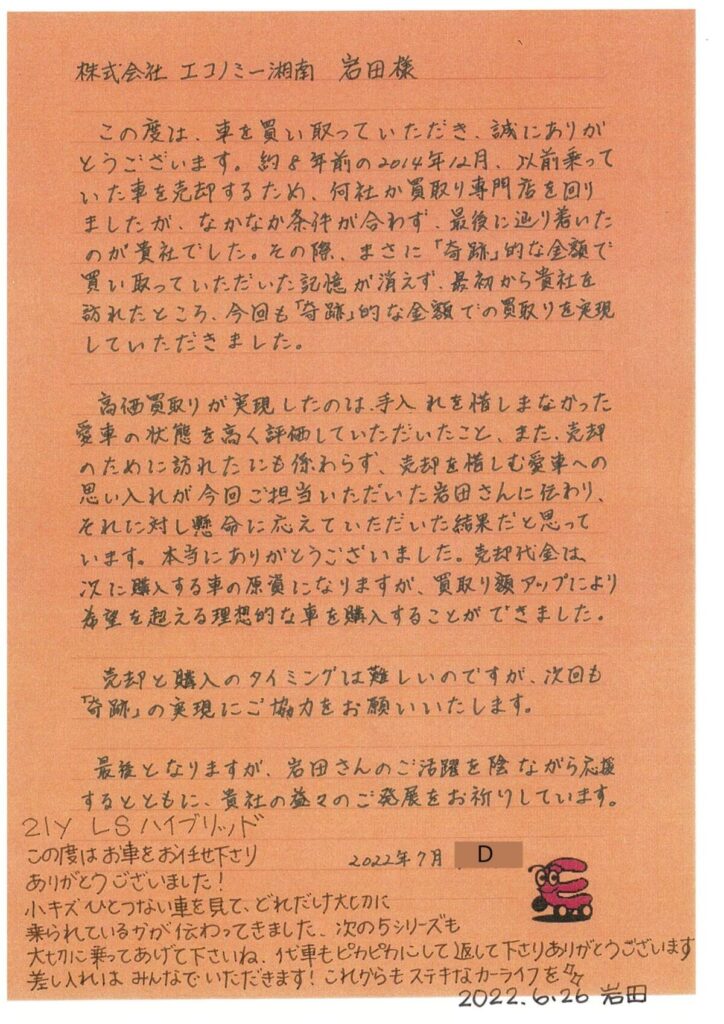 株式会社 エコノミー湘南 岩田様
この度は、車を買い取っていただき、誠にありが
とうございます。約8年前の2014年12月、以前乗って
いた車を売却するため、何社か買取り専門店を回り
ましたが、なかなか条件が合わず、最後に辿り着いた
のが貴社でした。その際、まさに「奇跡」的な金額で
買い取っていただいた記憶が消えず、最初から貴社を
訪れたところ、今回も「奇跡」的な金額での買取りを実現
していただきました。
高価買取りが実現したのは、手入れを惜しまなかった
愛車の状態を高く評価していただいたこと、また、売却
のために訪れたにも係わらず、売却を惜しむ愛車への
思い入れが今回ご担当いただいた岩田さんに伝わり、
それに対し懸命に応えていただいた結果だと思って
います。本当にありがとうございました。売却代金は、
次に購入する車の原資になりますが、買取り額アップにより
希望を超える理想的な車を購入することができました。
売却と購入のタイミングは難しいのですが、次回も
「奇跡」の実現にご協力をお願いいたします。
最後となりますが、岩田さんのご活躍を陰ながら応援
するとともに、貴社の益々のご発展をお祈りしています。
2022年7月 D
21Y LSハイブリッド
この度はお車をお任せ下さり
ありがとうございました!
小キズひとつない車を見て、どれだけ大切に
乗られているかが伝わってきました。次の5シリーズも
大切に乗ってあげて下さいね。代車もピカピカにして返して下さりありがとうございます
差し入れはみんなでいただきます!これからもステキなカーライフを
2022.6.26 岩田